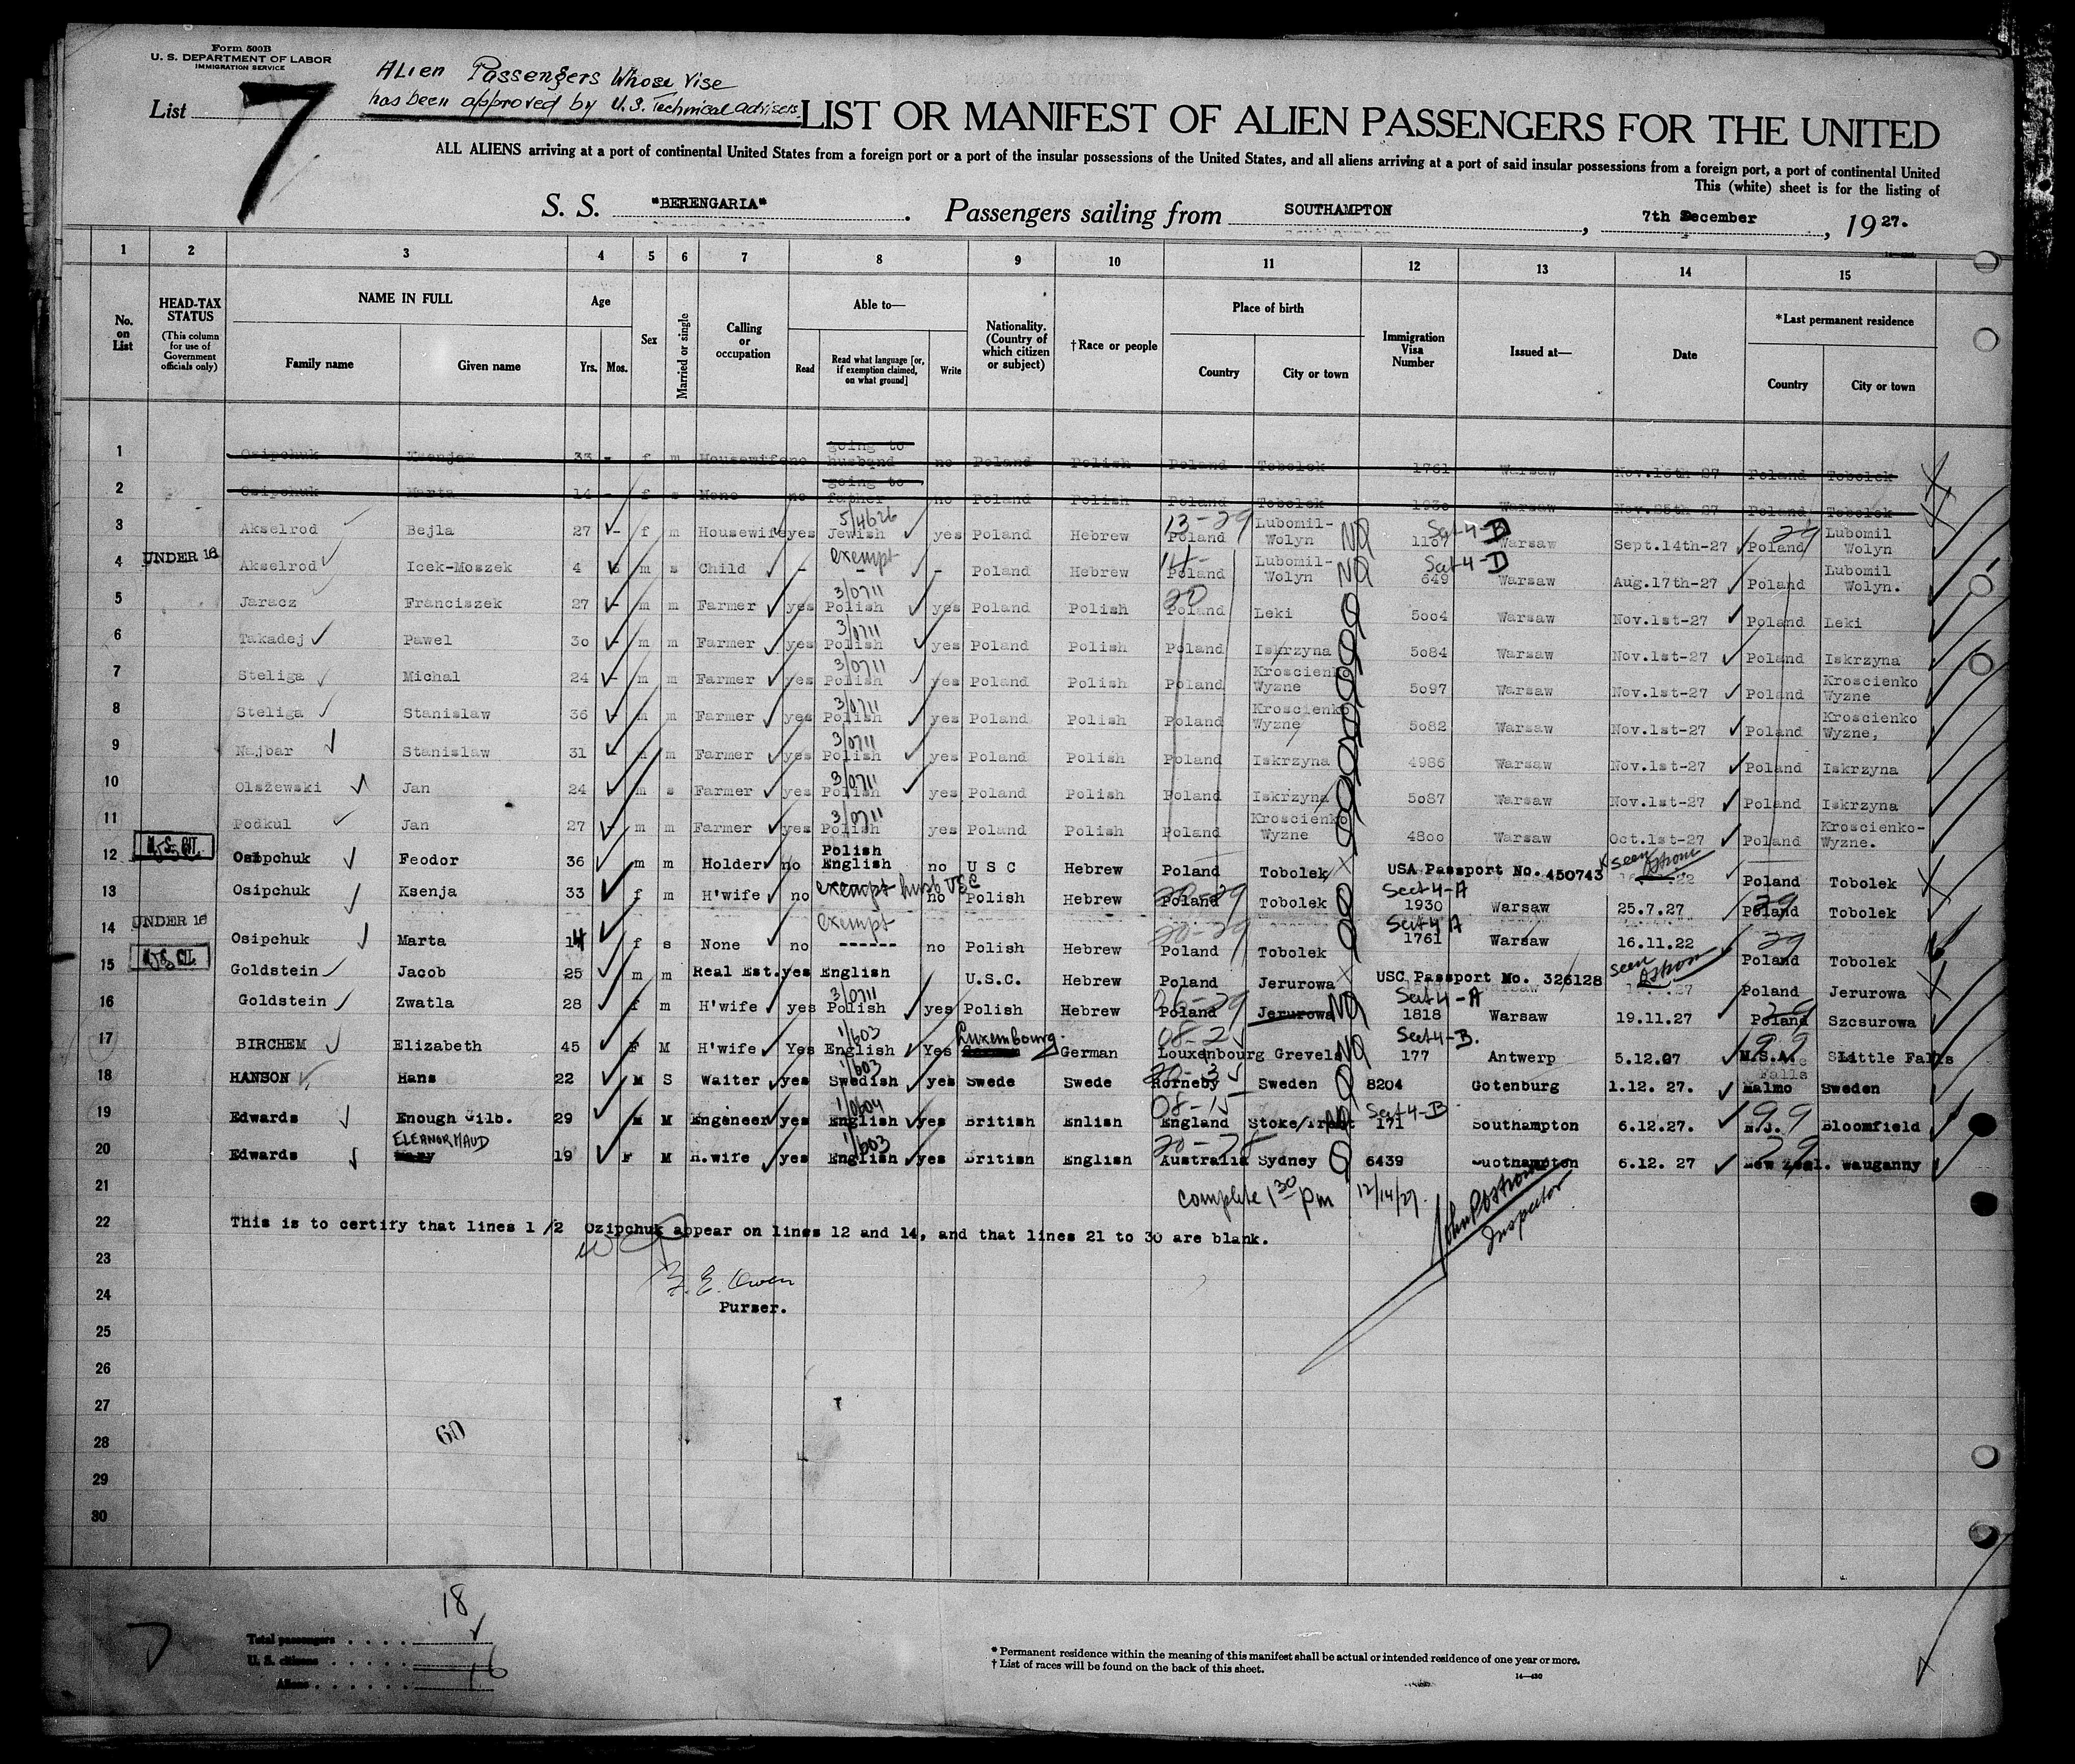 Form 500B
U. S. DEPARTMENT OF LABOR
IMMIGRATION SERVICE
List 7
Alien Passengers Whose Vise
has been approved by U.S. Technical advisers
LIST OR MANIFEST OF ALIEN PASSENGERS FOR THE UNITED
ALL ALIENS arriving at a port of continental United States from a foreign port or a port of the insular possessions of the United States, and all aliens arriving at a port of said insular possessions from a foreign port, a port of continental United
This (white) sheet is for the listing of
S. S. "BERENGARIA". Passengers sailing from SOUTHAMPTON, 7th December, 1927.
1 2 3 4 5 6 7 8 9 10 11 12 13 14 15
No. on List
HEAD-TAX STATUS
(This column for use of Government officials only)
NAME IN FULL
Family name Given name
Age
Yrs. Mos.
Sex
Married or single
Calling or occupation
Able to—
Read
Read what language [or, if exemption claimed, on what ground]
Write
Nationality. (Country of which citizen or subject)
†Race or people
Place of birth
Country City or town
Immigration Visa Number
Issued at—
Date
*Last permanent residence
Country City or town
1 Osipchuk Ksenja 33 - f m Housewife no going to husband no Poland Polish Poland Tobolek 1761 Warsaw Nov.16th-27 Poland Tobolek
2 Osipchuk Marta 14 - f s None no going to father no Poland Polish Poland Tobolek 1930 Warsaw Nov.25th-27 Poland Tobolek
3 Akselrod Bejla 27 - f m Housewife yes 5/4626 Jewish yes Poland Hebrew 13-29 Poland Lubomil-Wolyn NQ Sect 4-D 1107 Warsaw Sept.14th-27 29 Poland Lubomil Wolyn
4 UNDER 16 Akselrod Icek-Moszek 4 m s Child - exempt - - Poland Hebrew 14- Poland Lubomil-Wolyn NQ Sect 4-D 649 Warsaw Aug.17th-27 Poland Lubomil Wolyn.
5 Jaracz Franciszek 27 - m m Farmer yes 3/0711 Polish yes Poland Polish 20 Poland Leki Q 5004 Warsaw Nov.1st-27 Poland Leki
6 Takadej Pawel 30 - m m Farmer yes 3/0711 Polish yes Poland Polish Poland Iskrzyna Q 5084 Warsaw Nov.1st-27 Poland Iskrzyna
7 Steliga Michal 24 - m m Farmer yes 3/0711 Polish yes Poland Polish Poland Kroscienko Wyzne Q 5097 Warsaw Nov.1st-27 Poland Kroscienko Wyzne
8 Steliga Stanislaw 36 - m m Farmer yes 3/0711 Polish yes Poland Polish Poland Kroscienko Wyzne Q 5082 Warsaw Nov.1st-27 Poland Kroscienko Wyzne,
9 Najbar Stanislaw 31 - m m Farmer yes 3/0711 Polish yes Poland Polish Poland Iskrzyna Q 4986 Warsaw Nov.1st-27 Poland Iskrzyna
10 Olszewski Jan 24 m s Farmer yes 3/0711 Polish yes Poland Polish Poland Iskrzyna Q 5087 Warsaw Nov.1st-27 Poland Iskrzyna
11 Podkul Jan 27 - m m Farmer yes 3/0711 Polish yes Poland Polish Poland Kroscienko Wyzne Q 4800 Warsaw Oct.1st-27 Poland Kroscienko-Wyzne.
12 U.S. CIT. Osipchuk Feodor 36 m m Holder no Polish English no U S C Hebrew Poland Tobolek USA Passport No. 450743 seen Poland Tobolek
13 Osipchuk Ksenja 33 f m H'wife no exempt husb USC no Polish Hebrew 20-29 Poland Tobolek Q Sect 4-A 1930 Warsaw 25.7.27 29 Poland Tobolek
14 UNDER 16 Osipchuk Marta 14 f s None no exempt ------ no Polish Hebrew 20-29 Poland Tobolek Q Sect 4 A 1761 Warsaw 16.11.22 29 Poland Tobolek
15 U.S. CIT. Goldstein Jacob 25 m m Real Est. yes English U.S.C. Hebrew Poland Jerurowa USC Passport No. 326128 seen Poland Jerurowa
16 Goldstein Zwatla 28 f m H'wife yes 3/0711 Polish yes Polish Hebrew 26-29 Poland Jerurowa NQ Sect 4-A 1818 Warsaw 19.11.27 29 Poland Szcsurowa
17 BIRCHEM Elizabeth 45 F M H'wife Yes 1/603 English Yes Luxembourg. German 08-25 Louxenbourg Grevels NQ Sect 4-B. 177 Antwerp 5.12.27 99 U.S.A. Little Falls
18 HANSON Hans 22 M S Waiter yes 1/603 Swedish yes Swede Swede Horneby Sweden Q 8204 Gotenburg 1.12. 27. Malmo Sweden
19 Edwards Enough Gilb. 29 M M Engeneer yes 1/0604 English yes British Enlish 08-15 England Stoke/Trent NQ Sect 4-B 171 Southampton 6.12.27. 99 N.J. Bloomfield
20 Edwards ELEANOR MAUD Mary 19 F M H.wife yes 1/603 English yes British English 20-28 Australia Sydney Q 6439 Suothampton 6.12. 27 29 New Zeal. Wauganny
21 Complete 1 30 pm 12/14/27. John P Ostrom Inspector
22 This is to certify that lines 1/2 Ozipchuk appear on lines 12 and 14, and that lines 21 to 30 are blank.
23
E. Owen
24 Purser.
25
26
27
28 60
29
30
18
Total passengers
U. S. citizens
Aliens 16
* Permanent residence within the meaning of this manifest shall be actual or intended residence of one year or more.
† List of races will be found on the back of this sheet.
14—430